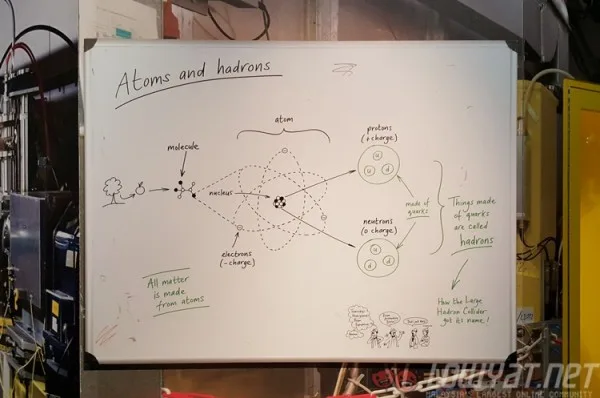 Atoms and hadrons
atom
protons
(+ charge)
u
u
d
molecule
nucleus
made of
quarks
Things made
of quarks
are called
hadrons
neutrons
(0 charge)
u
d
d
electrons
(- charge)
All matter
is made
from atoms
How the Large
Hadron Collider
got its name!
.com
LOWYAT.NET
MALAYSIA'S LARGEST ONLINE COMMUNITY